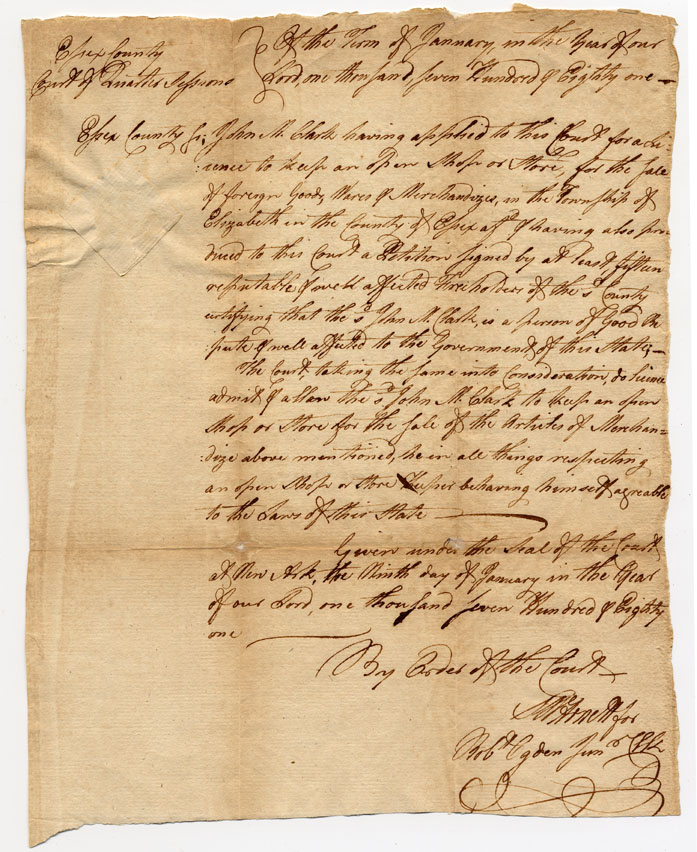 Essex County
Court of Quarter Sessions
Of the Term of January, in the Year of our
Lord, one thousand seven Hundred & Eighty one —
Essex County Ss; John M. Clark having applied to this Court for a li-
:cence to keep an open Shop or Store, for the Sale
of foreign Goods, Wares & Merchandizes, in the Township of
Elizabeth in the County of Essex afd. & having also pro-
duced to this Court a Petition signed by at least fifteen
reputable & well affected Freeholders of the sd. County
certifying that the sd. John M. Clark, is a person of Good Re-
:pute & well affected to the Government of this State; —
The Court, taking the same into Consideration, do licence
admit & allow the sd. John M. Clark to keep an open
Shop or Store for the Sale of the Articles of Merchan-
:dize above mentioned, he in all things respecting
an open Shop or Store Keeper behaving himself agreable
to the Laws of this State —
Given under the Seal of the Court
at New Ark, the Ninth day of January in the Year
of our Lord, one thousand seven Hundred & Eighty
one —
By Order of the Court —
Arnett for
Robt. Ogden Junr. Clk